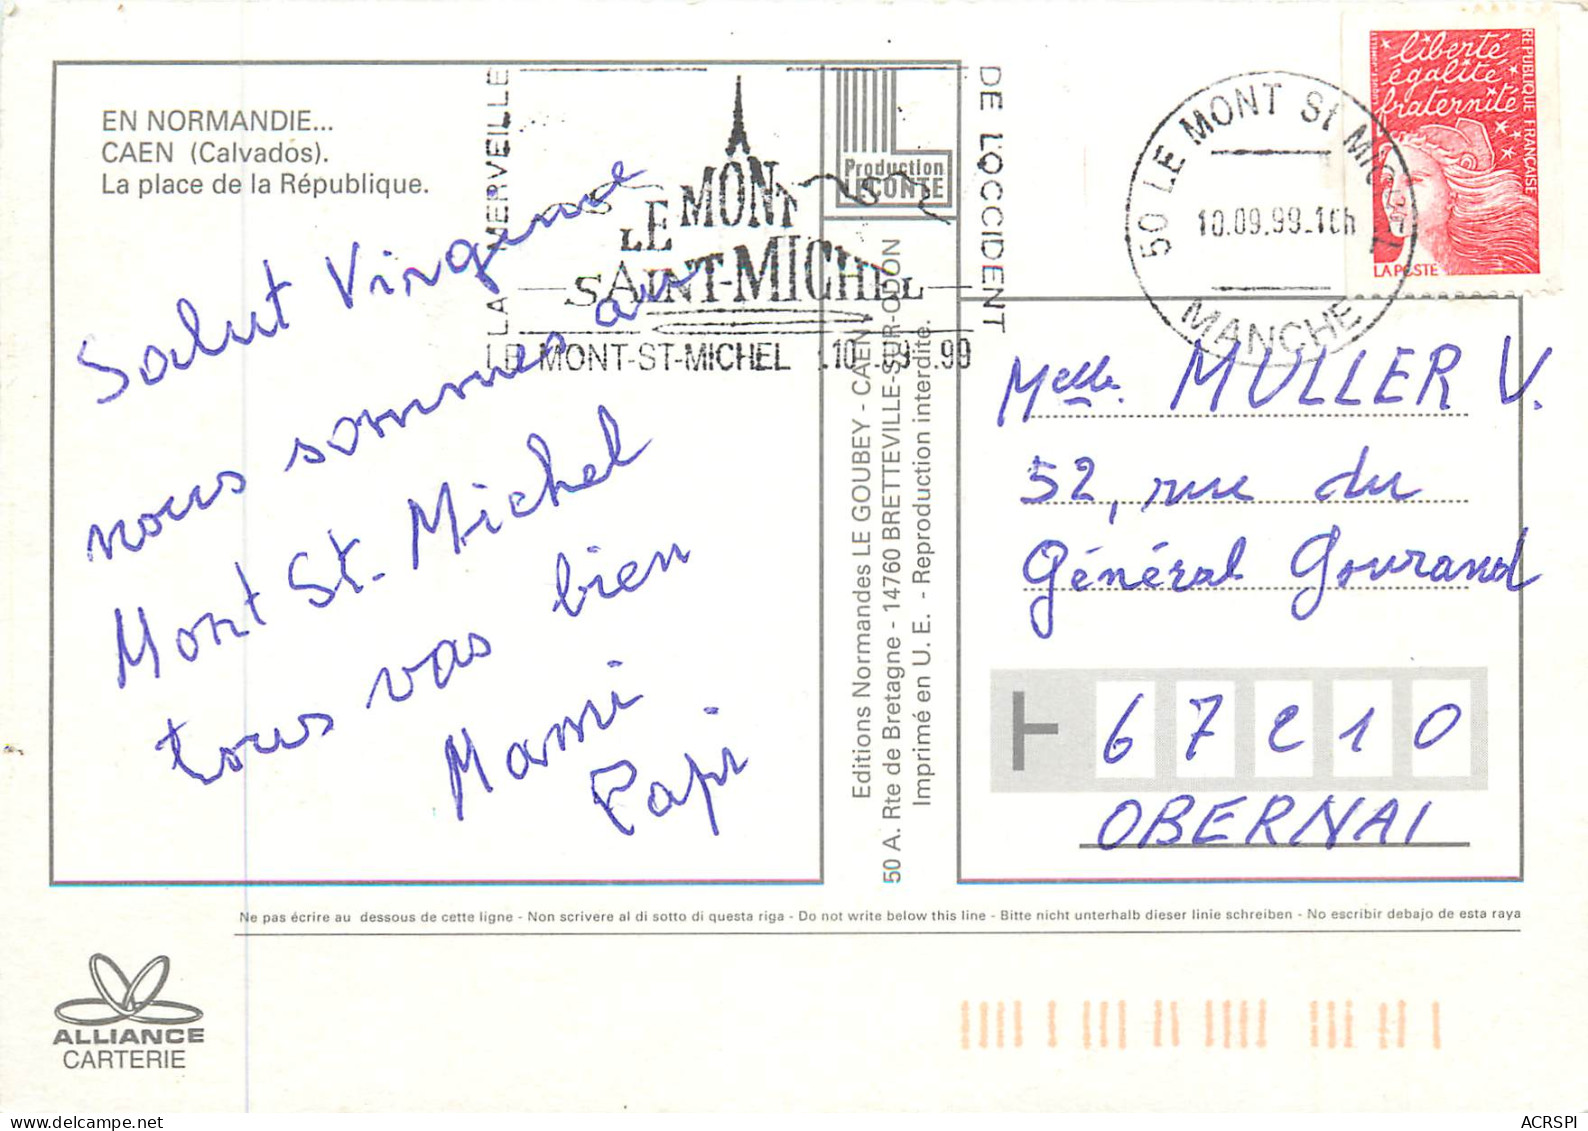 EN NORMANDIE...
CAEN (Calvados).
La place de la République.
Salut Virginie
nous sommes au
Mont St. Michel
tous vas bien
Mami
Papi
LA MERVEILLE
LE MONT
SAINT-MICHEL
DE L'OCCIDENT
LE MONT-ST-MICHEL 10. .9 .99
Production
LECONTE
Editions Normandes LE GOUBEY - CAEN
50 A. Rte de Bretagne - 14760 BRETTEVILLE-SUR-ODON
Imprimé en U. E. - Reproduction interdite.
50 LE MONT St MICHEL
10.09.99.16h
MANCHE
liberté
égalité
fraternité
REPUBLIQUE FRANÇAISE
LA POSTE
Melle. MULLER V.
52, rue du
Général Gourand
67210
OBERNAI
Ne pas écrire au dessous de cette ligne - Non scrivere al di sotto di questa riga - Do not write below this line - Bitte nicht unterhalb dieser linie schreiben - No escribir debajo de esta raya
ALLIANCE
CARTERIE
ACRSPI